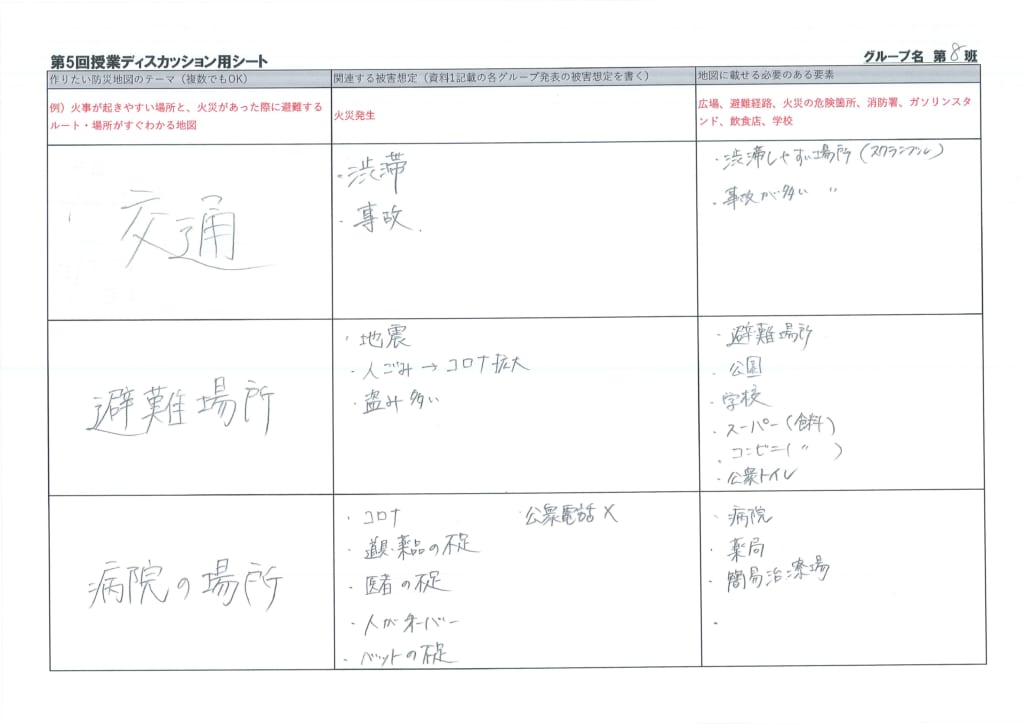 第5回授業ディスカッション用シート
グループ名 第8班
作りたい防災地図のテーマ（複数でもOK）
関連する被害想定（資料1記載の各グループ発表の被害想定を書く）
地図に載せる必要のある要素
例）火事が起きやすい場所と、火災があった際に避難する
ルート・場所がすぐわかる地図
火災発生
広場、避難経路、火災の危険箇所、消防署、ガソリンスタ
ンド、飲食店、学校
交通
・渋滞
・事故
・渋滞しやすい場所（スクランブル）
・事故が多い 〃
避難場所
・地震
・人ごみ→コロナ拡大
・盗み多い
・避難場所
・公園
・学校
・スーパー（食料）
・コンビニ（〃）
・公衆トイレ
病院の場所
・コロナ
・公衆電話×
・道具・薬品の不足
・医者の不足
・人がオーバー
・ベットの不足
・病院
・薬局
・簡易治療場
・